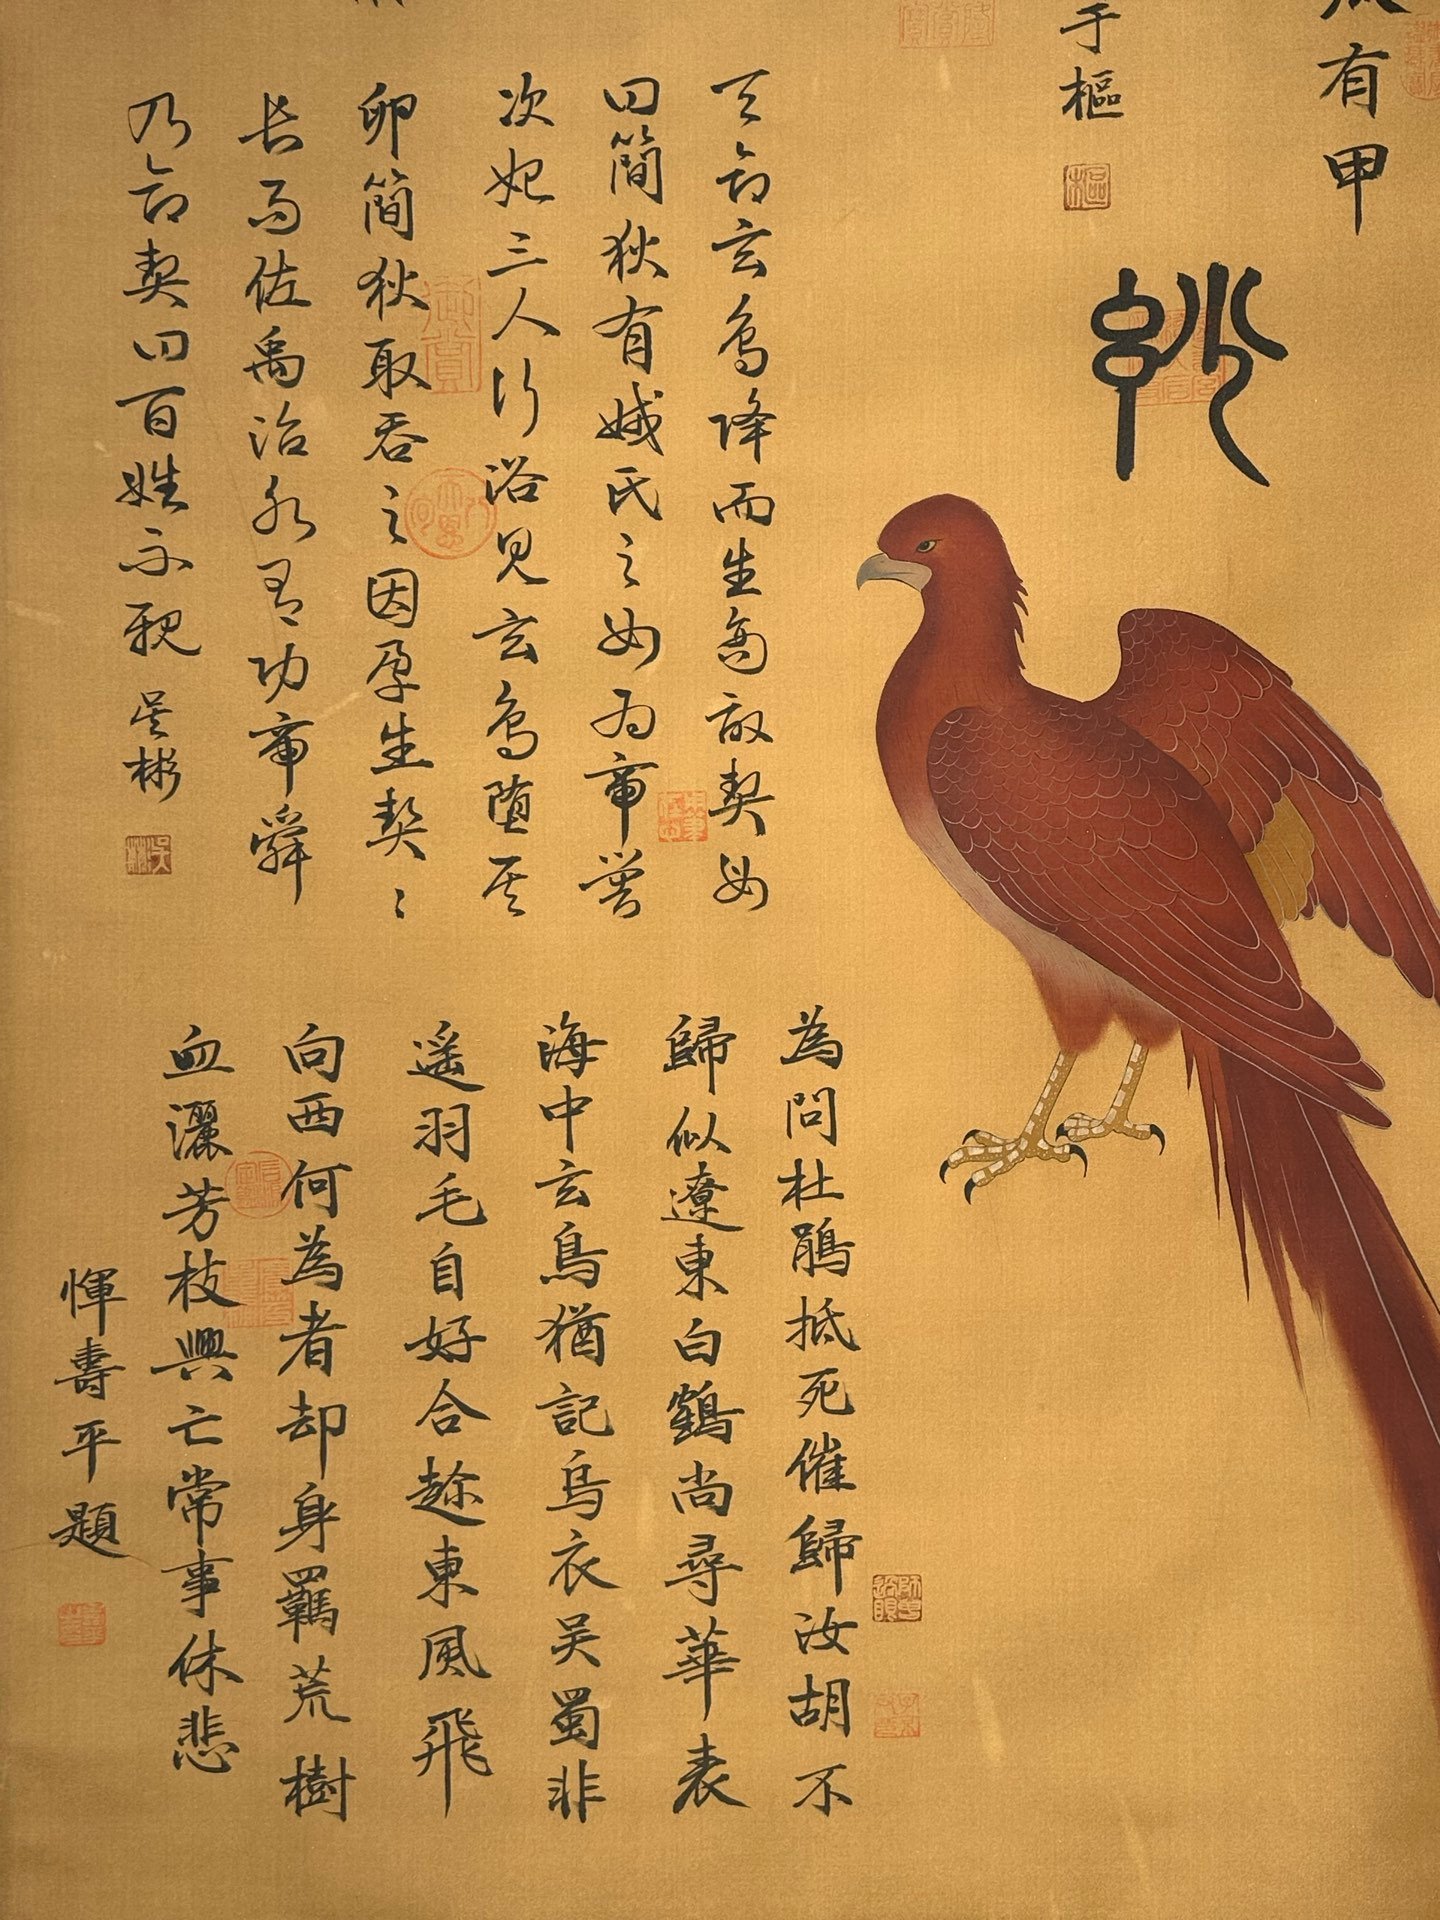 有甲
于樞
樞
天命玄鳥降而生商故契母
曰簡狄有娀氏之女为帝喾
次妃三人行浴見玄鳥堕其
卵簡狄取吞之因孕生契〻
長而佐禹治水有功帝舜
乃命契曰百姓不親 吴彬
吴彬
為問杜鵑抵死催歸汝胡不
歸似遼東白鶴尚尋華表
海中玄鳥猶記烏衣吴蜀非
遥羽毛自好合趂東風飛
向西何為者却身羈荒樹
血灑芳枝興亡常事休悲
惲壽平題